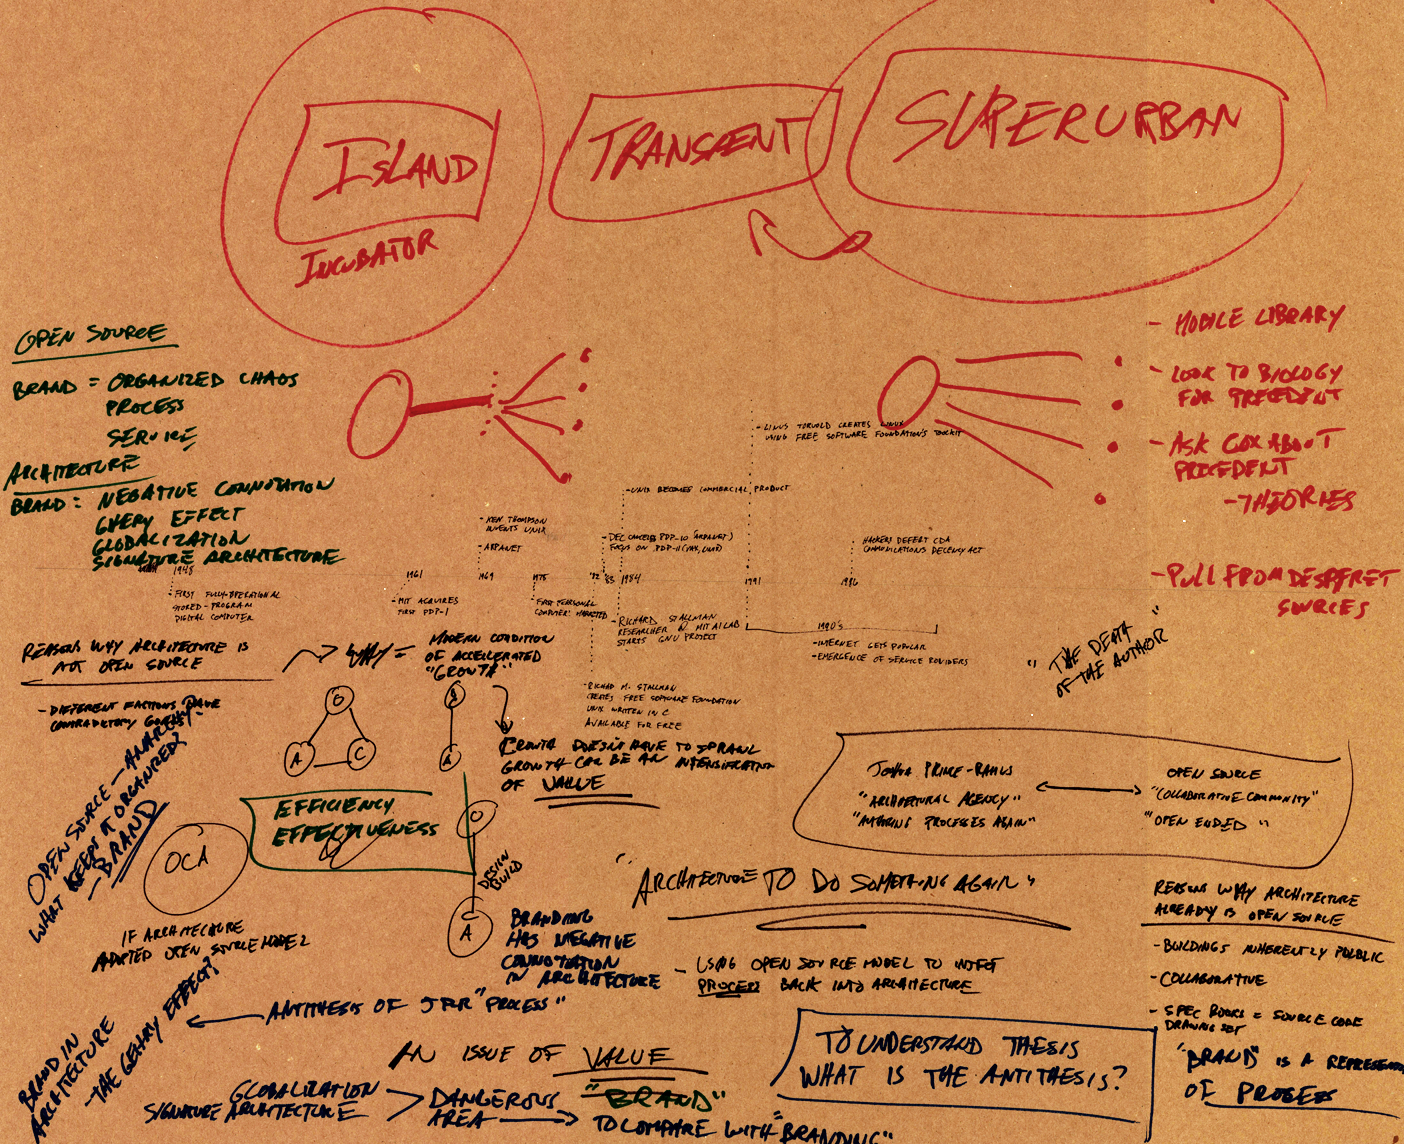 ISLAND
INCUBATOR
TRANSIENT
SUPERURBAN
- MOBILE LIBRARY
- LOOK TO BIOLOGY
FOR PRECEDENT
- ASK COX ABOUT
PRECEDENT
- THEORIES
- PULL FROM DESPERET
SOURCES
OPEN SOURCE
BRAND = ORGANIZED CHAOS
PROCESS
SERVICE
ARCHITECTURE
BRAND: NEGATIVE CONNOTATION
GHERY EFFECT
GLOBALIZATION
SIGNATURE ARCHITECTURE
1948
- FIRST FULLY-OPERATIONAL
STORED-PROGRAM
DIGITAL COMPUTER
1961
- MIT ACQUIRES
FIRST PDP-1
- KEN THOMPSON
INVENTS UNIX
- ARPANET
1969
1975
FIRST PERSONAL
COMPUTER MARKETED
- UNIX BECOMES COMMERCIAL PRODUCT
- DEC CANCELS PDP-10 (ARPANET)
FOCUS ON PDP-11 (VAX, UNIX)
'82 '83 1984
- RICHARD STALLMAN
RESEARCHER @ MIT AI LAB
STARTS GNU PROJECT
- RICHAD M. STALLMAN
CREATES FREE SOFTWARE FOUNDATION
UNIX WRITTEN IN C
AVAILABLE FOR FREE
- LINUS TORVOLD CREATES LINUX
USING FREE SOFTWARE FOUNDATION'S TOOLKIT
1991
HACKERS DEFEAT CDA
COMMUNICATIONS DECENCY ACT
1996
1990'S
- INTERNET GETS POPULAR
- EMERGENCE OF SERVICE PROVIDERS
REASONS WHY ARCHITECTURE IS
NOT OPEN SOURCE
- DIFFERENT FACTIONS HAVE
CONTRADICTORY GOALS
WHY =
MODERN CONDITION
OF ACCELERATED
"GROWTH"
O
A
C
GROWTH DOESN'T HAVE TO SPRAWL
GROWTH CAN BE AN INTENSIFICATION
OF VALUE
"THE DEATH
OF THE AUTHOR"
OPEN SOURCE - ANARCHY?
WHAT KEEPS IT ORGANIZED?
- BRAND
EFFICIENCY
EFFECTIVENESS
OCA
O
DESIGN
BUILD
A
IF ARCHITECTURE
ADOPTED OPEN SOURCE MODEL
JOSHUA PRINCE-RAMUS
"ARCHITECTURAL AGENCY"
"AUTHORING PROCESSES AGAIN"
OPEN SOURCE
"COLLABORATIVE COMMUNITY"
"OPEN ENDED"
"ARCHITECTURE TO DO SOMETHING AGAIN"
BRANDING
HAS NEGATIVE
CONNOTATION
IN ARCHITECTURE
- USING OPEN SOURCE MODEL TO INJECT
PROCESS BACK INTO ARCHITECTURE
REASONS WHY ARCHITECTURE
ALREADY IS OPEN SOURCE
- BUILDINGS INHERENTLY PUBLIC
- COLLABORATIVE
- SPEC BOOKS = SOURCE CODE
DRAWING SET
"BRAND" IS A
OF PROCESS
BRAND IN
ARCHITECTURE
- THE GEHRY EFFECT?
ANTITHESIS OF JPR "PROCESS"
AN ISSUE OF VALUE
GLOBALIZATION
SIGNATURE ARCHITECTURE
DANGEROUS
AREA
"BRAND"
TO COMPARE WITH "BRANDING"
TO UNDERSTAND THESIS
WHAT IS THE ANTITHESIS?